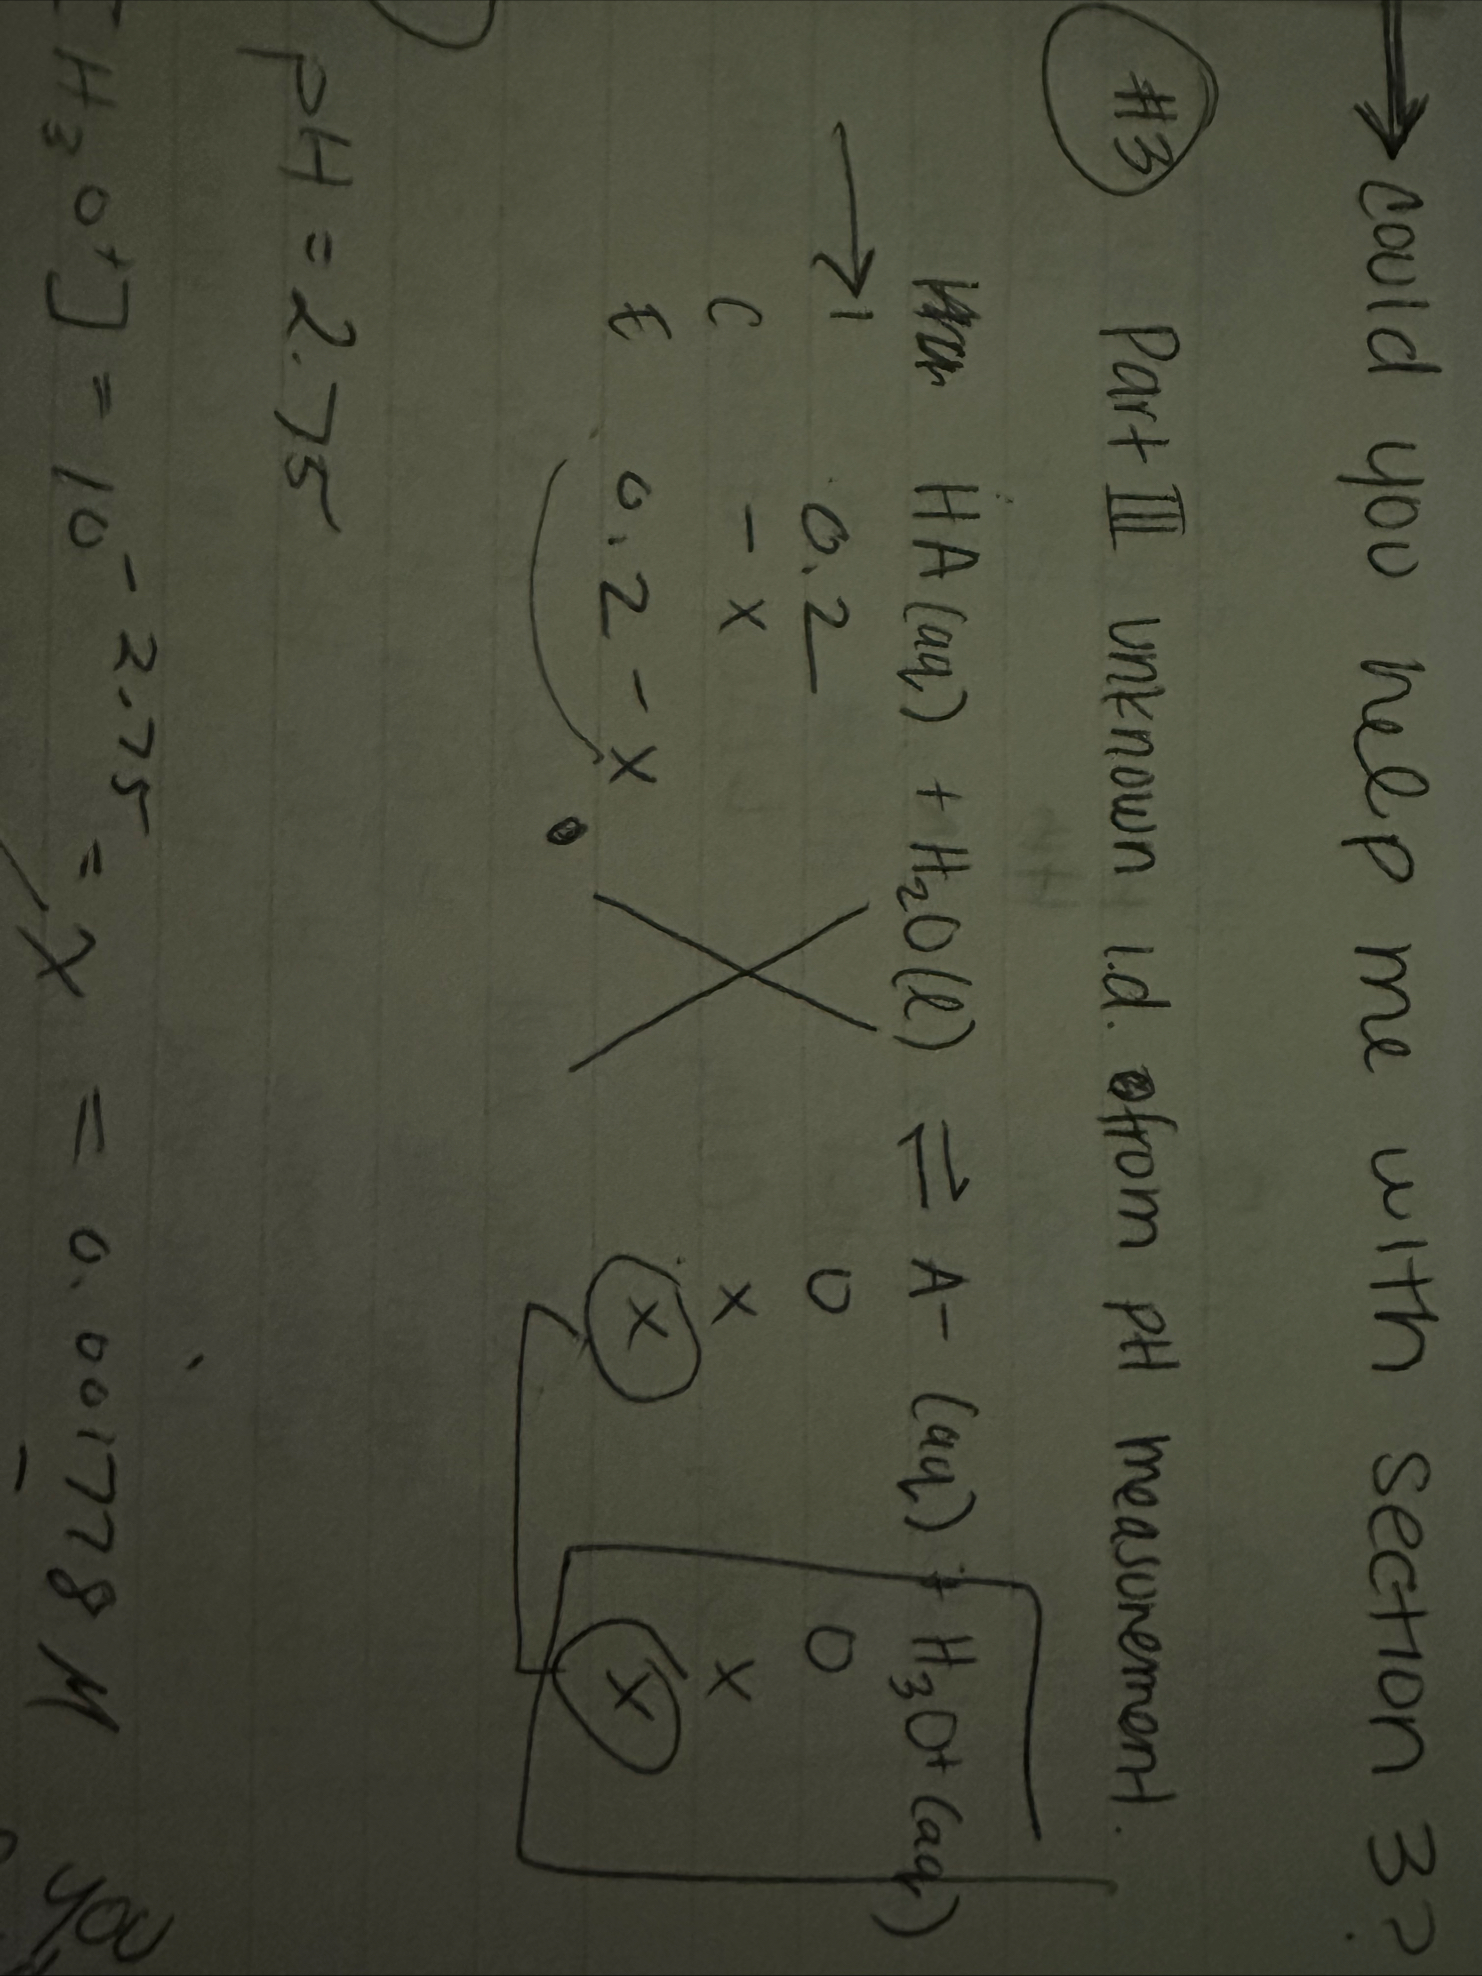 → could you help me with section 3?
#3 Part III unknown i.d. from pH measurement.
HA (aq) + H₂O (l) ⇌ A- (aq) + H₃O+ (aq)
→ I 0.2 0 0
C - x x x
E 0.2 - x x x
pH = 2.75
H₃O⁺] = 10⁻²·⁷⁵ = x = 0.001778 M